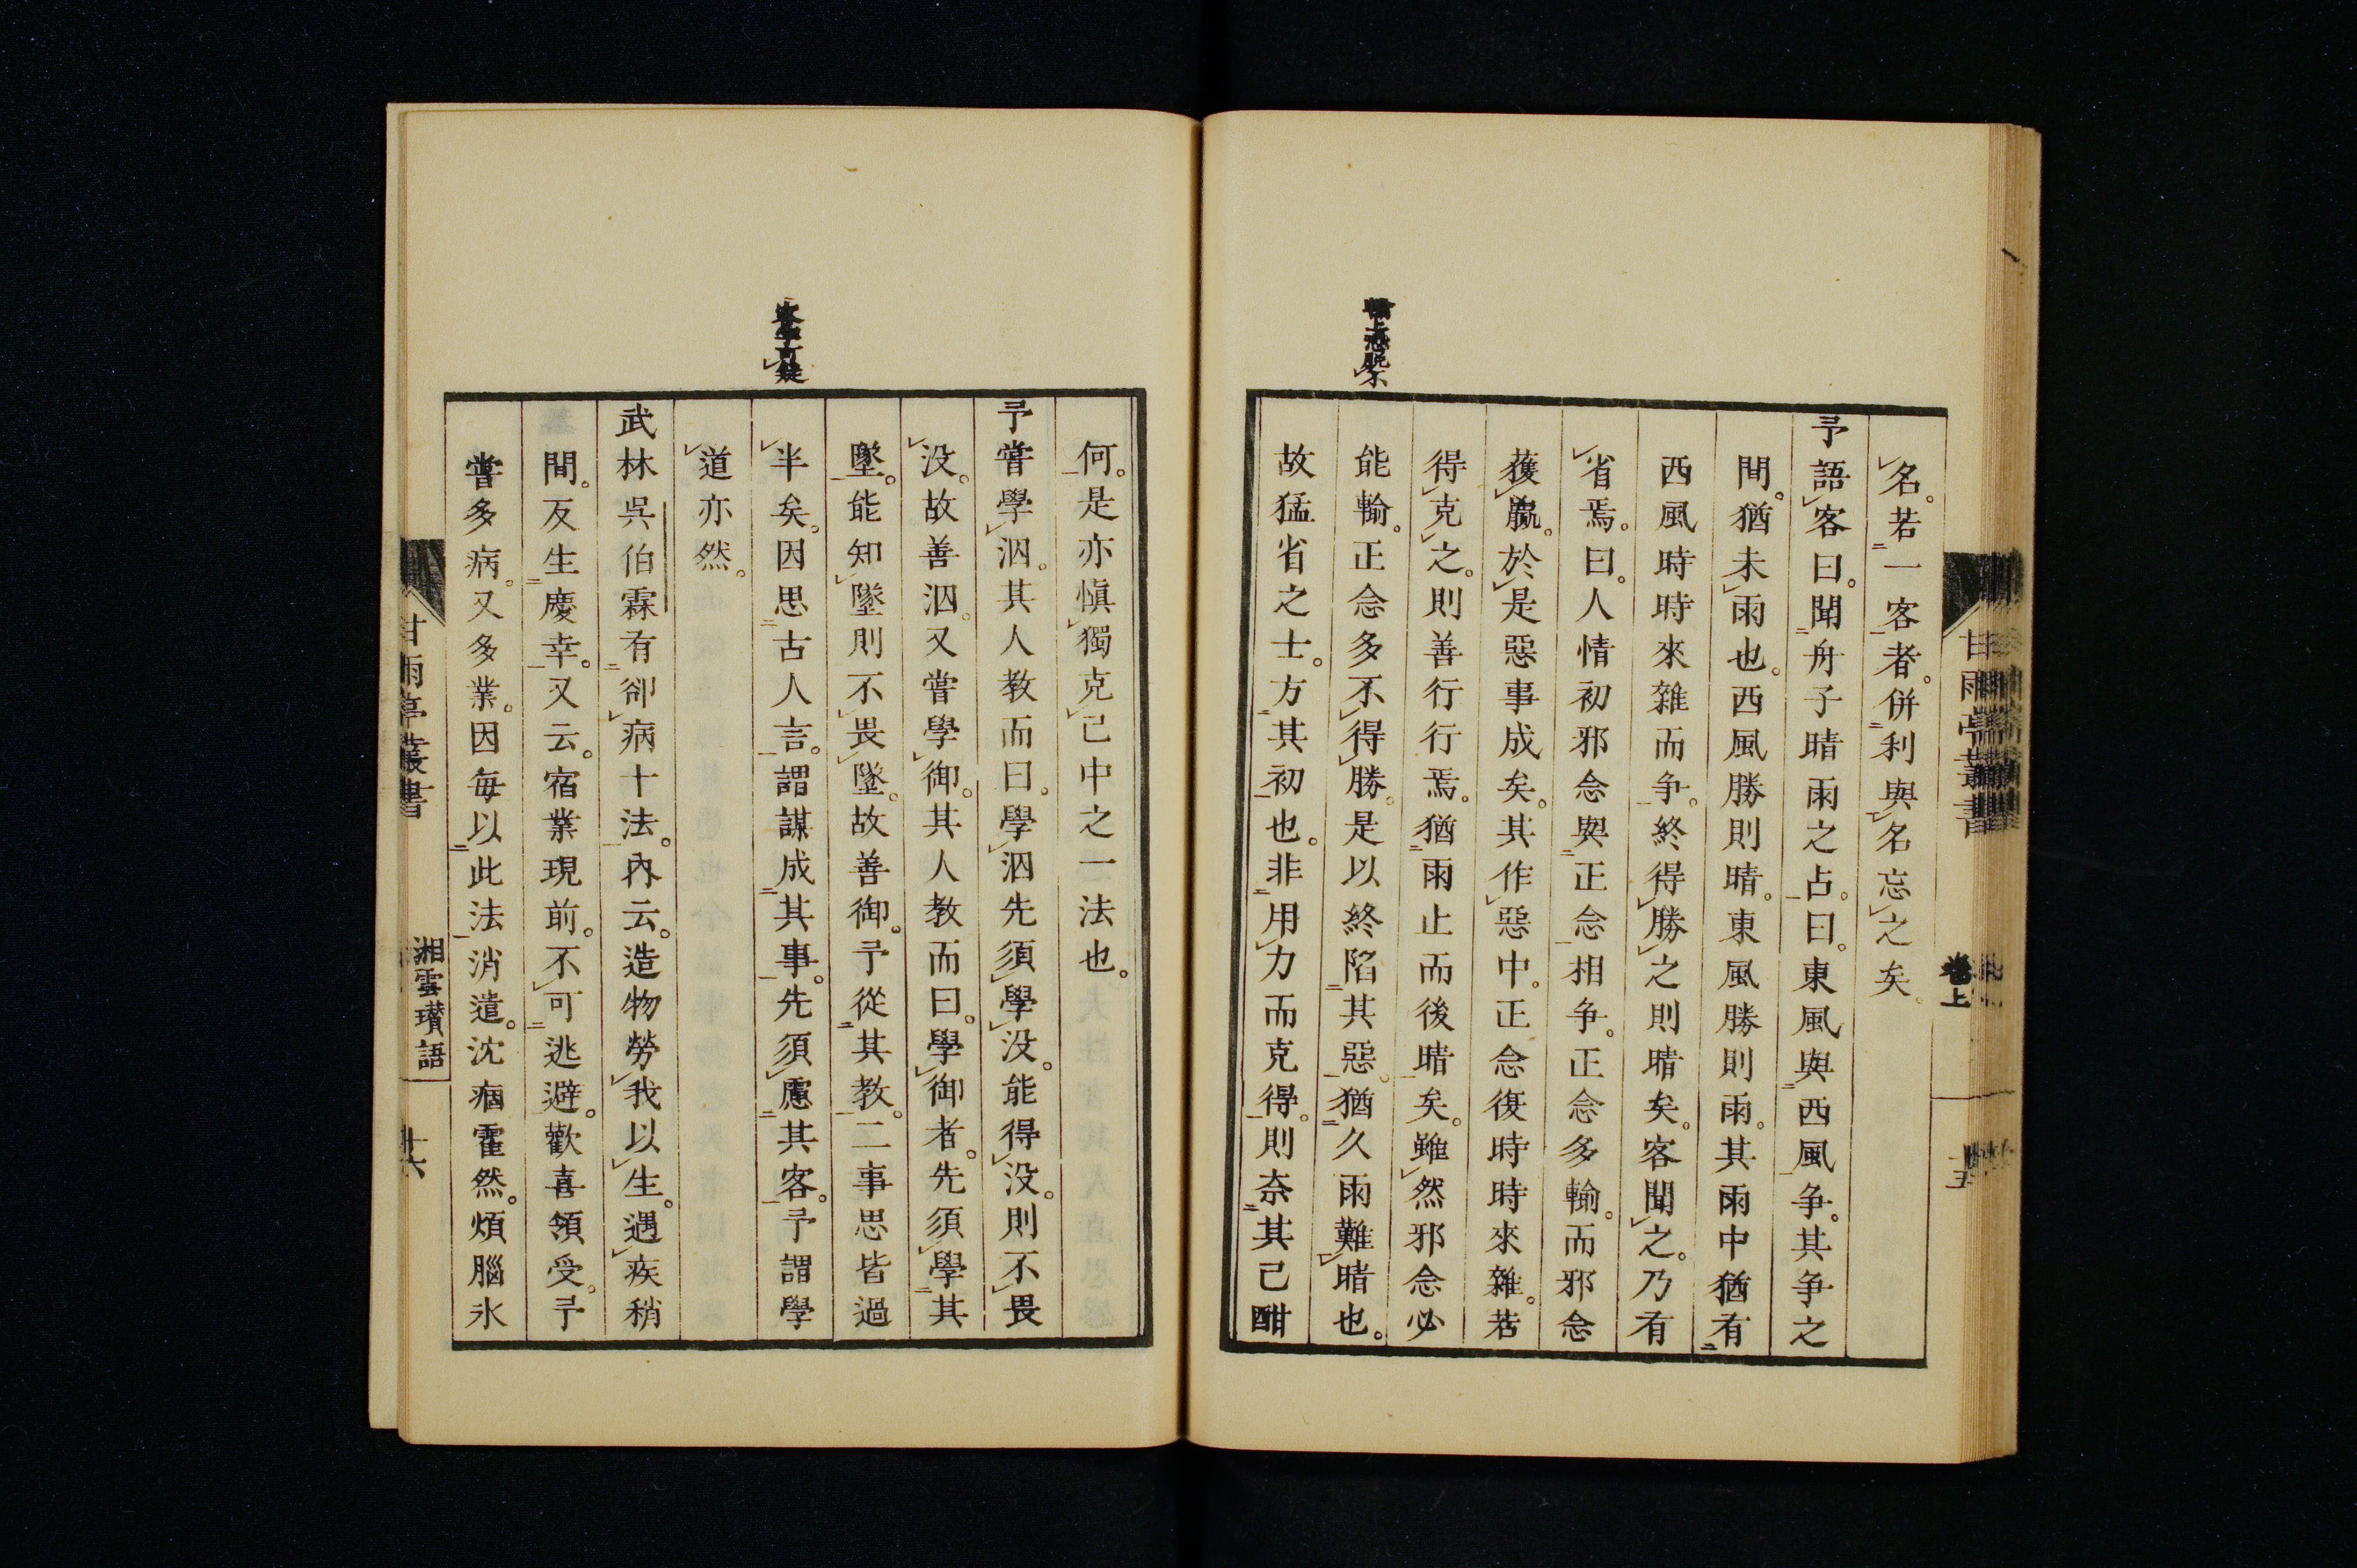 名。若一客者。併利與名忘之矣。
予語客曰。聞舟子晴雨之占。曰。東風與西風争。其争之
間。猶未雨也。西風勝則晴。東風勝則雨。其雨中猶有
西風時時來雜而争。終得勝之則晴矣。客聞之。乃有
省焉。曰。人情初邪念與正念相争。正念多輸。而邪念
獲贏。於是惡事成矣。其作惡中。正念復時時來雜。若
得克之。則善行行焉。猶雨止而後晴矣。雖然邪念必
能輸。正念多不得勝。是以終陷其惡。猶久雨難晴也。
故猛省之士。方其初也。非用力而克得。則奈其己酣
甘雨亭叢書
卷上
何。是亦愼獨克己中之一法也。
予嘗學泅。其人教而曰。學泅先須學没。能得没。則不畏
没。故善泅。又嘗學御。其人教而曰。學御者。先須學其
墜。能知墜則不畏墜。故善御。予從其教。二事思皆過
半矣。因思古人言。謂謀成其事。先須慮其客。予謂學
道亦然。
武林呉伯霖有卻病十法。內云。造物勞我以生。遇疾稍
間。反生慶幸。又云。宿業現前。不可逃避。歡喜領受。予
嘗多病。又多業。因毎以此法消遣。沈痼霍然。煩腦氷
甘雨亭叢書
湘雲瓚語
十六